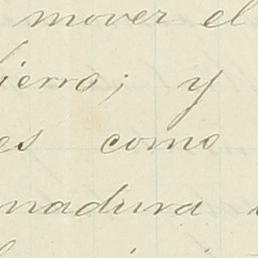 mover el
ierro; y
es como
nadura